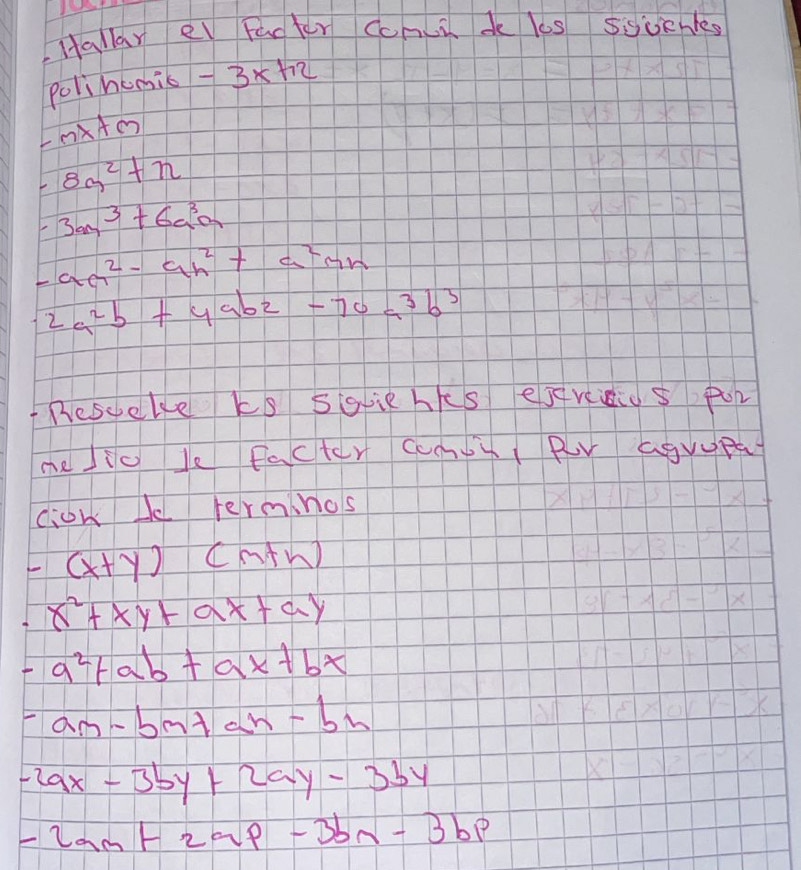 - Hallar el Factor Comun de los siguientes
polinomis - 3x+12
- mx+m
- 8m² + n
- 3am³ + 6a³m
- am² - an² + a²mn
- 2a²b + 4ab2 - 10 a³b³
- Resuelve ks siguientes ejercicios por
medio de factor comun, por agrupa-
cion de terminos
- (x+y) (m+n)
- x²+xy+ax+ay
- a²+ab+ax+bx
- am-bm+an-bn
- 2ax - 3by + 2ay - 3by
- 2am + 2ap - 3bm - 3bp